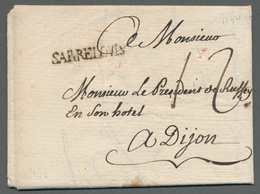 A Monsieur
SARRELOUIS
12
Monsieur Le President de Ruffey
En Son hotel
A Dijon